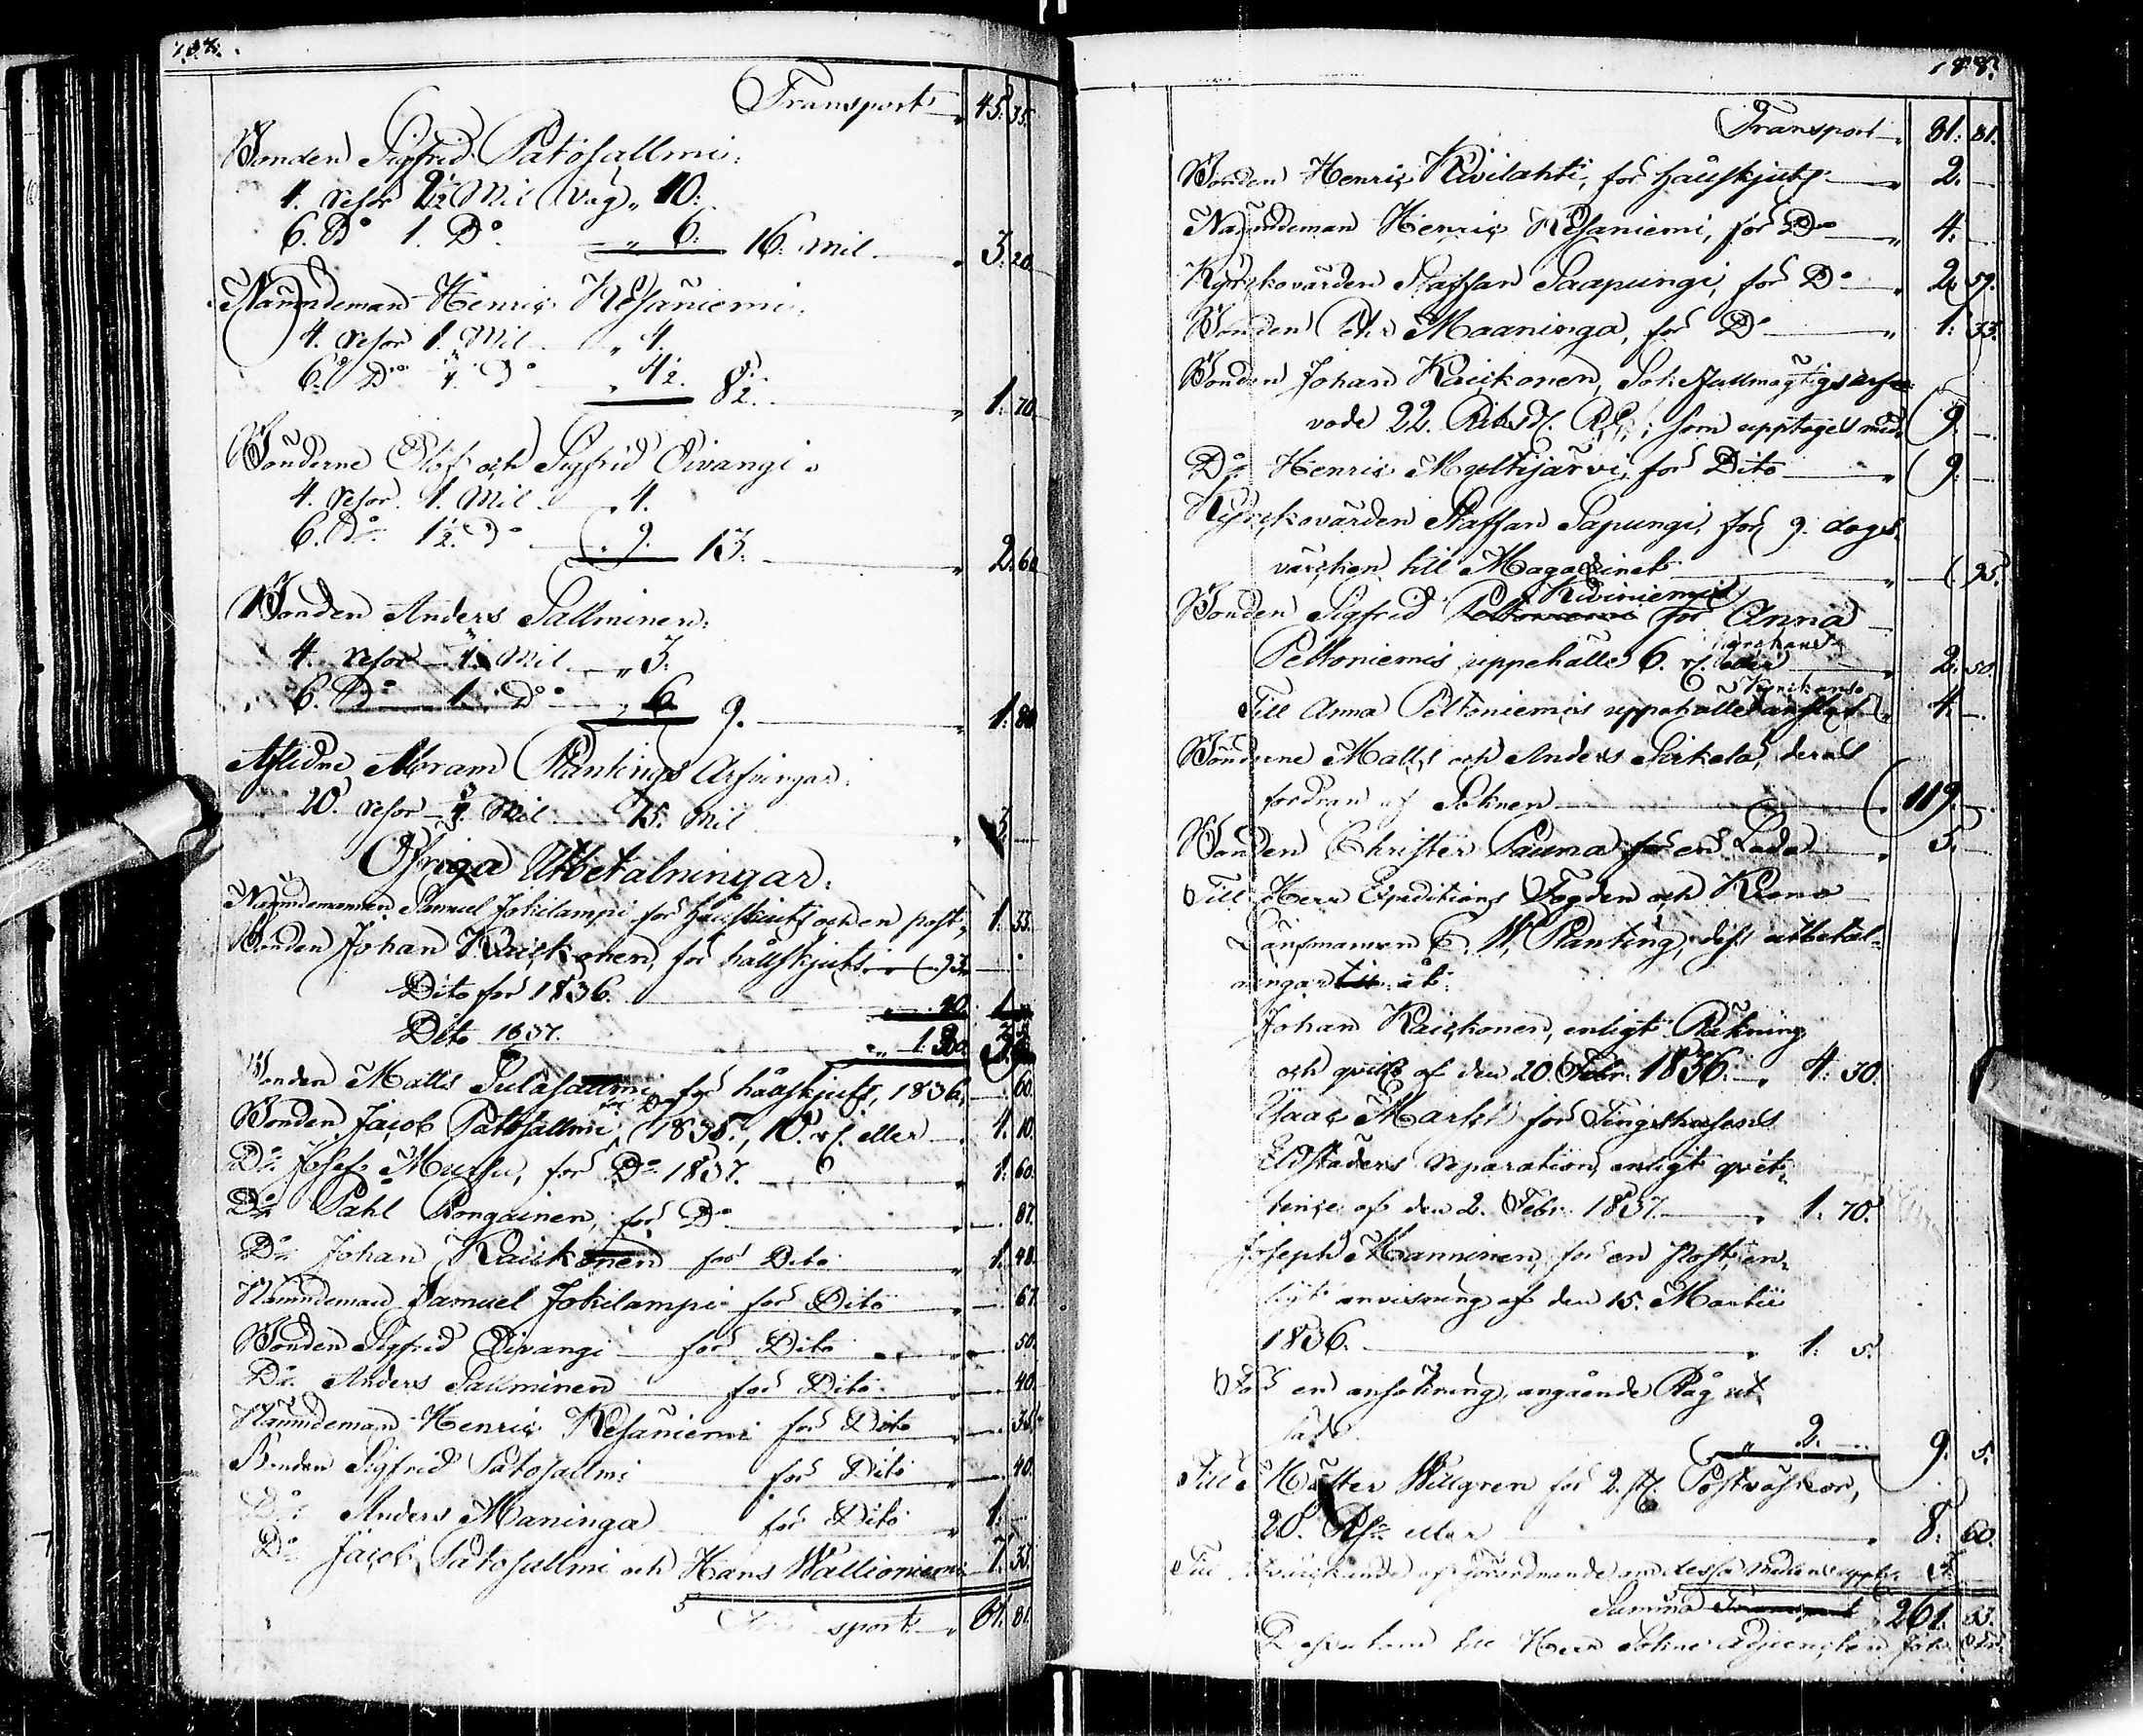 Transport „ 45. 35.
Bonden Sigfrid Patosallmi.
4. resor 2½ Mil väg „ 10.
6. Do 1. Do „ 6. 16. Mil „ 3. 20.
Nämndeman Henric Kesäniemi.
4. resor 1. Mil „ 4.
6. Do ¾. Do „ 4½. 8½. „ 1. 70.
Bönderne Olof och Sigfrid Oivangi.
4. resor 1. Mil „ 4.
6. Do 1½. Do „ 9. 13. „ 2. 60.
Bonden Anders Sallminen.
4. resor ¾. Mil „ 3.
6. Do 1. Do „ 6. 9. „ 1. 80.
Aflidne Abram Plantings Arfvingar.
20. resor ¾. Mil 15. Mil „ 3.
Öfriga Utbetalningar.
Nämndemannen Samuel Jokilampi för hållskjuts och en post „ 1. 33.
Bonden Johan Kaickonen, för hållskjuts „ 93.
Dito för 1836. „ 40.
Dito 1837. „ 1. 30.
Bonden Matts Sulasallmi för hållskjuts, 1836. 60.
Bonden Jacob Patosallmi för Do 1835., 10. rf. eller „ 4. 10.
Do Josef Mursu, för Do 1837. „ 1. 60.
Do Pahl Rongainen, för Do „ 87.
Do Johan Kaickonen för Dito „ 1. 48.
Nämndeman Samuel Jokilampi för Dito „ 67.
Bonden Sigfrid Oivangi för Dito „ 50.
Do Anders Sallminen för Dito „ 40.
Nämndeman Henric Kesäniemi för Dito „ 35.
Bonden Sigfrid Patosallmi för Dito „ 40.
Do Anders Maninga för Dito „ 1.
Do Jacob Patosallmi och Hans Wallioniemi 7. 33.
Transport „ 81. 81.
188.
Transport „ 81. 81.
Bonden Henric Kivilahti, för hållskjuts „ 2.
Nämndeman Henric Kesäniemi, för Do „ 4.
Kyrckovärden Staffan Saapungi, för Do „ 2. 57.
Bonden Petr Maaninga, för Do „ 1. 33.
Bonden Johan Kaickonen, Sok.fullmägtigs arf-
vode 22. Riksd. Rgs; som upptages med 9.
Do Henric Multijärvi, för Dito „ 9.
Kyrckovärden Staffan Sapungi, för 9. dags
värcken till Magazinet „ 95.
Kiviniemi
Bonden Sigfrid för Anna
Peltoniemis uppehälle 6. rf. eller „ 2. 50.
Till Anna Peltoniemis uppehälle „ 4.
Bönderne Matts och Anders Sirkela, deras
fordran af Soknen „ 119.
Bonden Christer Sauna för en Lada „ 5.
Till Herr Expeditions Fogden och Krono
Länsmannen C. W. Planting, dess utbetal-
ningar åt:
Johan Kaickonen, enligt Räkning
och qvitt. af den 20. Febr. 1836. „ 4. 30.
Isaac Markel för Tingshusens
Eldstäders reparation, enligt qvit-
tence af den 2. Febr. 1837. „ 1. 70.
Joseph Manninen, för en post, en-
ligt anvisning af den 15. Martii
1836. „ 1. 5.
För en ansökning, angående Råg ut
säde „ 2. 9. 5.
Till Mäster Willgren för 2. st. Postväskor,
20. Rf. eller „ 8. 60.
Summa „ 261. 83.
Dessutom till Herr Sokne Adjuncten